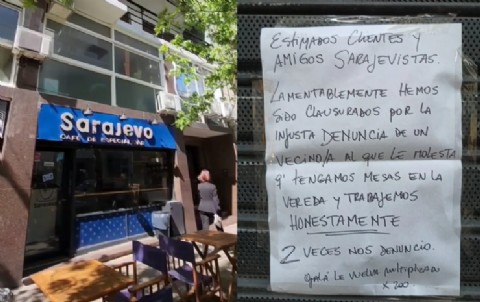 Sarajevo
CAFÉ DE ESPECIALIDAD
ESTIMADOS CLIENTES Y
AMIGOS SARAJEVISTAS.
LAMENTABLEMENTE HEMOS
SIDO CLAUSURADOS POR LA
INJUSTA DENUNCIA DE UN
VECINO/A AL QUE LE MOLESTA
Q' TENGAMOS MESAS EN LA
VEREDA Y TRABAJEMOS
HONESTAMENTE
2 VECES NOS DENUNCIO.
Ojalá LE VUELVA MULTIPLICADO
X 200